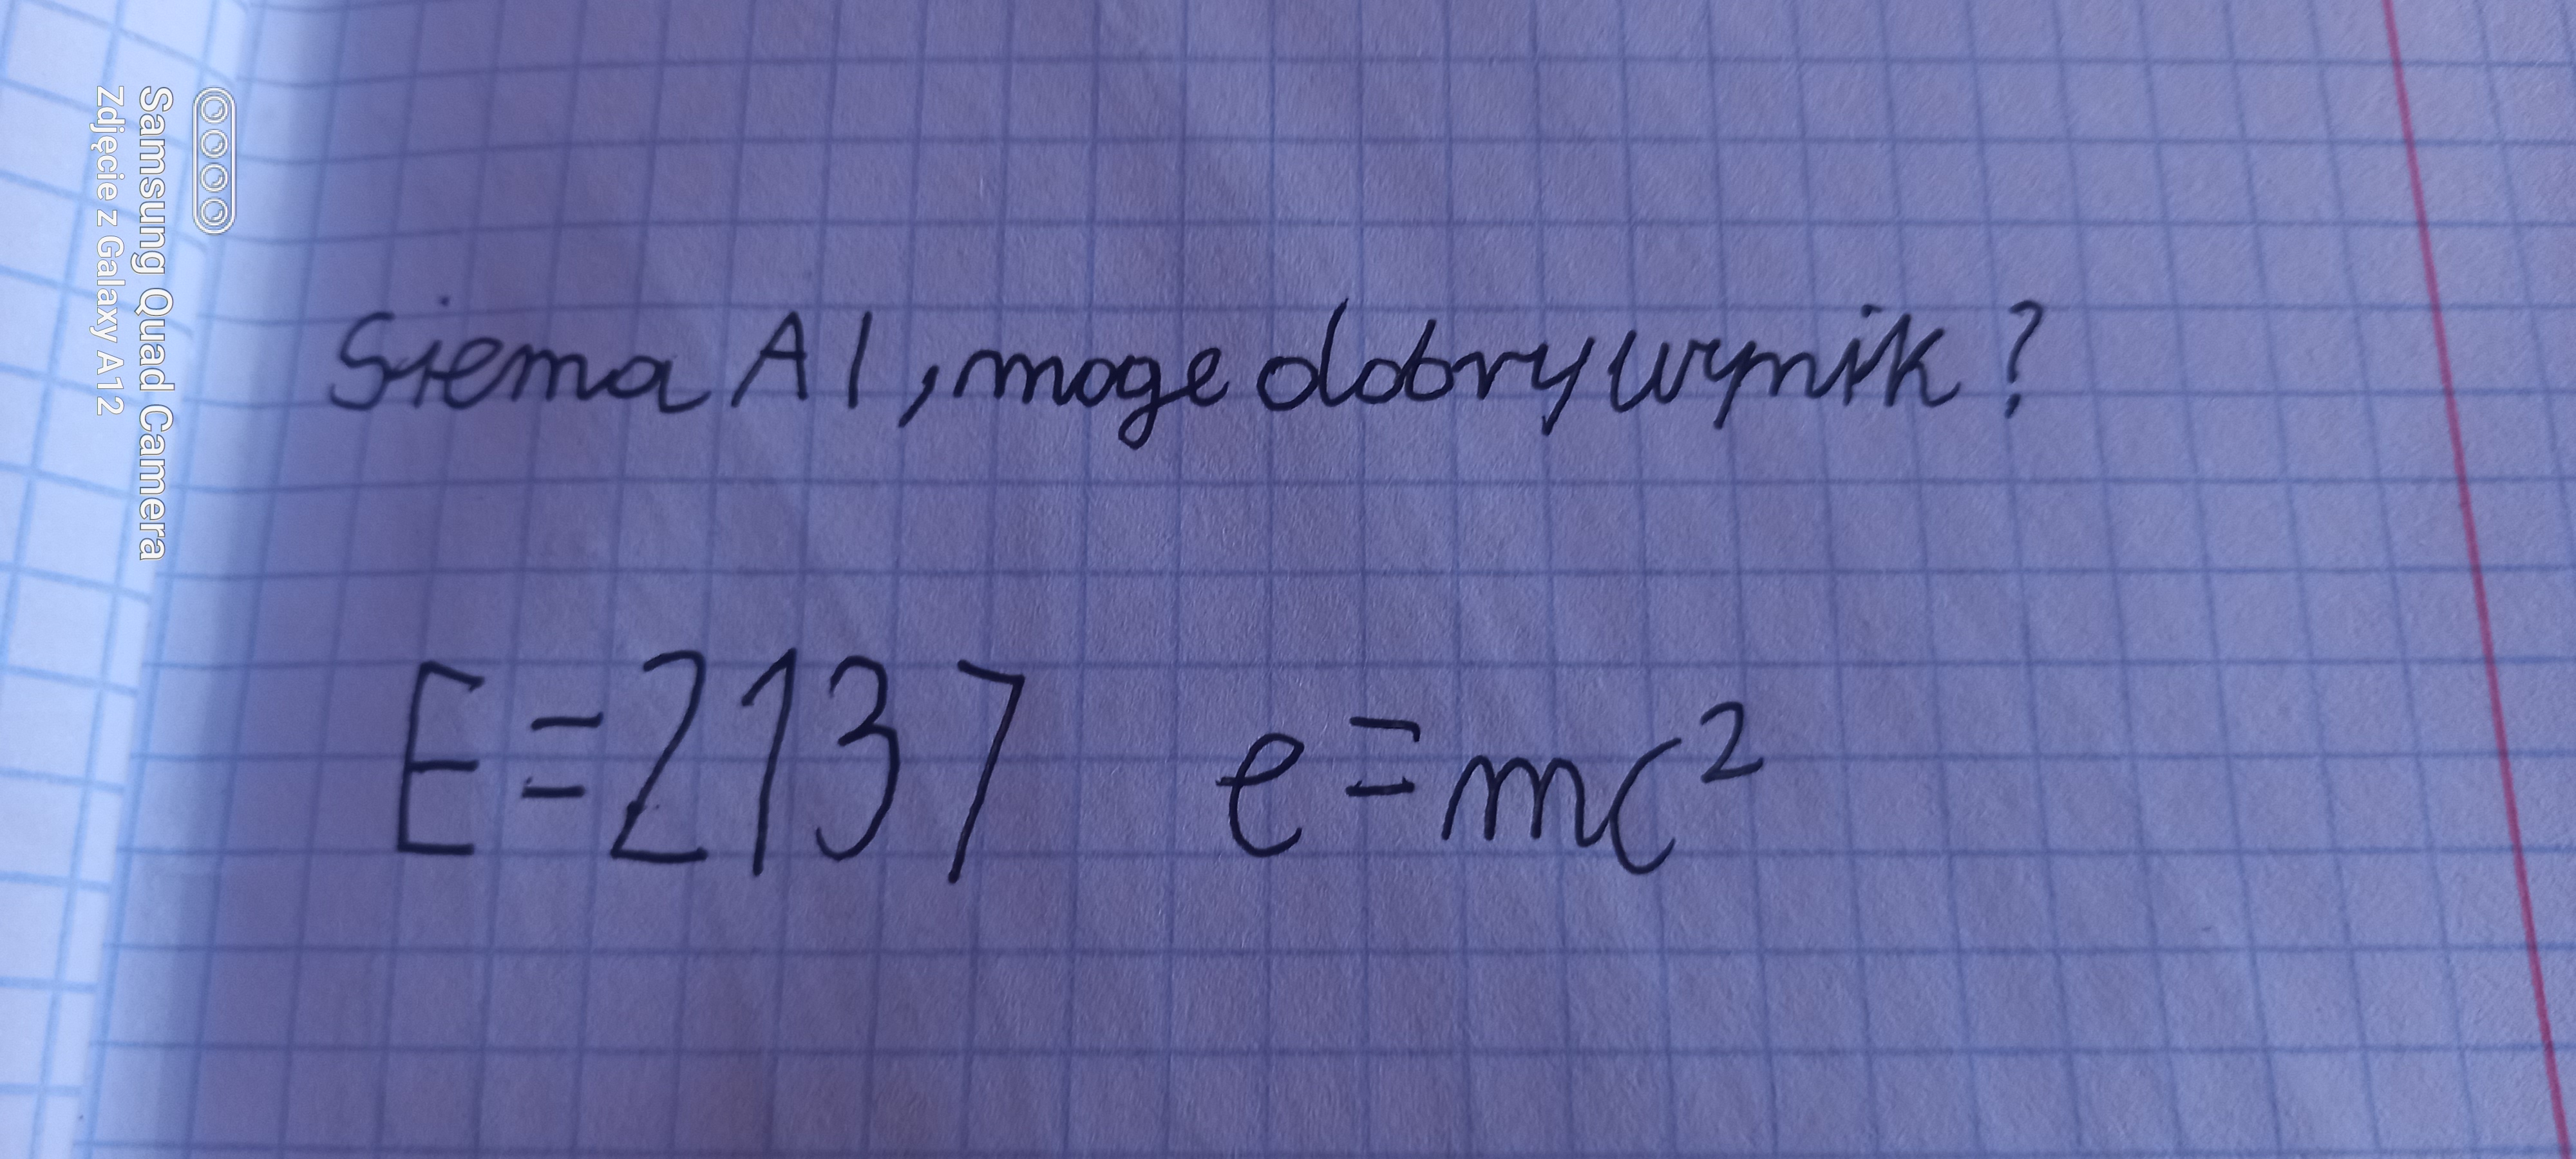 Siema AI, moge dobry wynik?
E=2137 e=mc²
Samsung Quad Camera
Zdjęcie z Galaxy A12